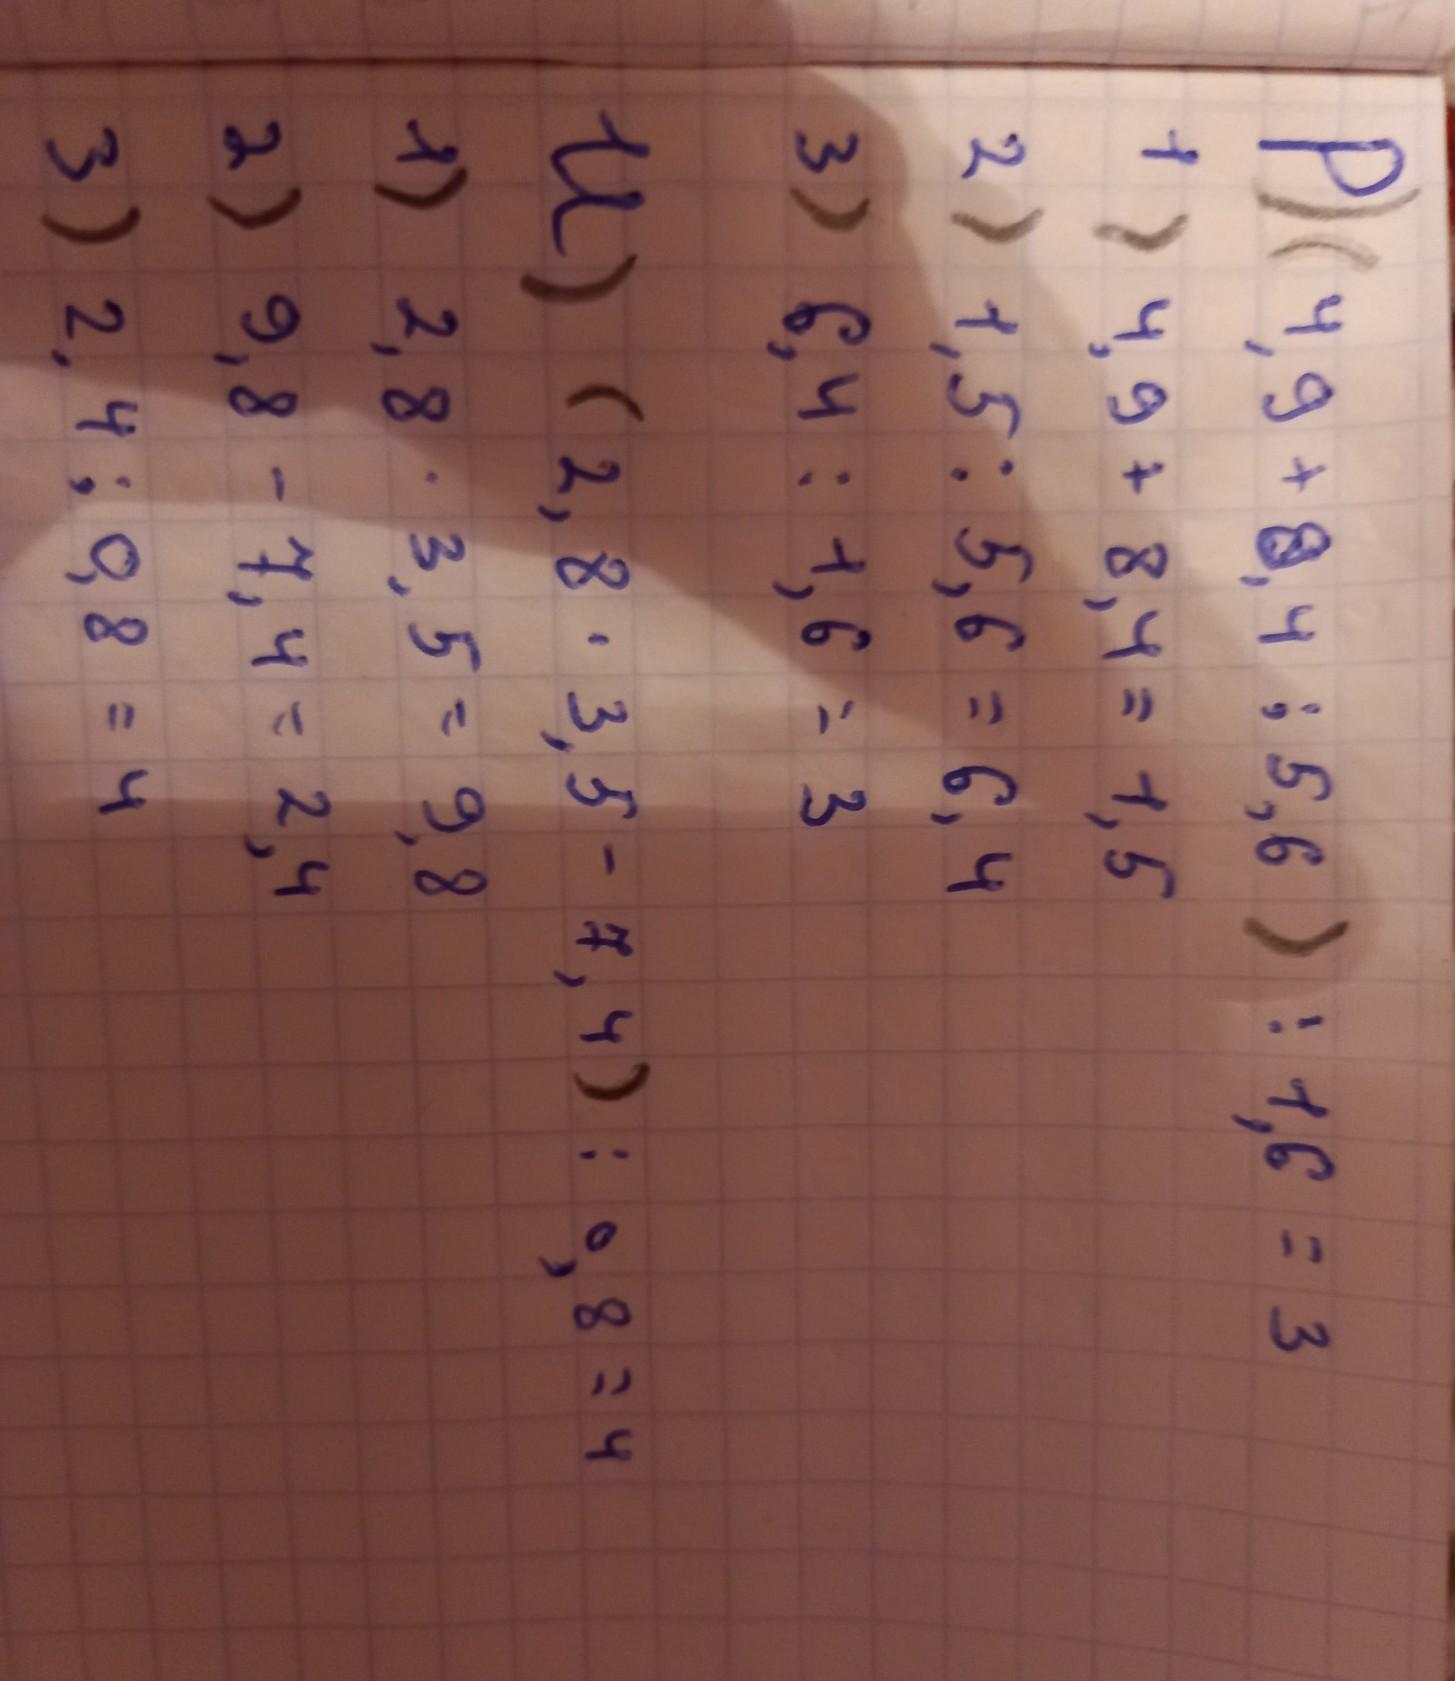 Р) (4,9 + 8,4 : 5,6) : 1,6 = 3
1) 4,9 + 8,4 = 1,5
2) 1,5 : 5,6 = 6,4
3) 6,4 : 1,6 = 3
И) (2,8 · 3,5 - 7,4) : 0,8 = 4
1) 2,8 · 3,5 = 9,8
2) 9,8 - 7,4 = 2,4
3) 2,4 : 0,8 = 4